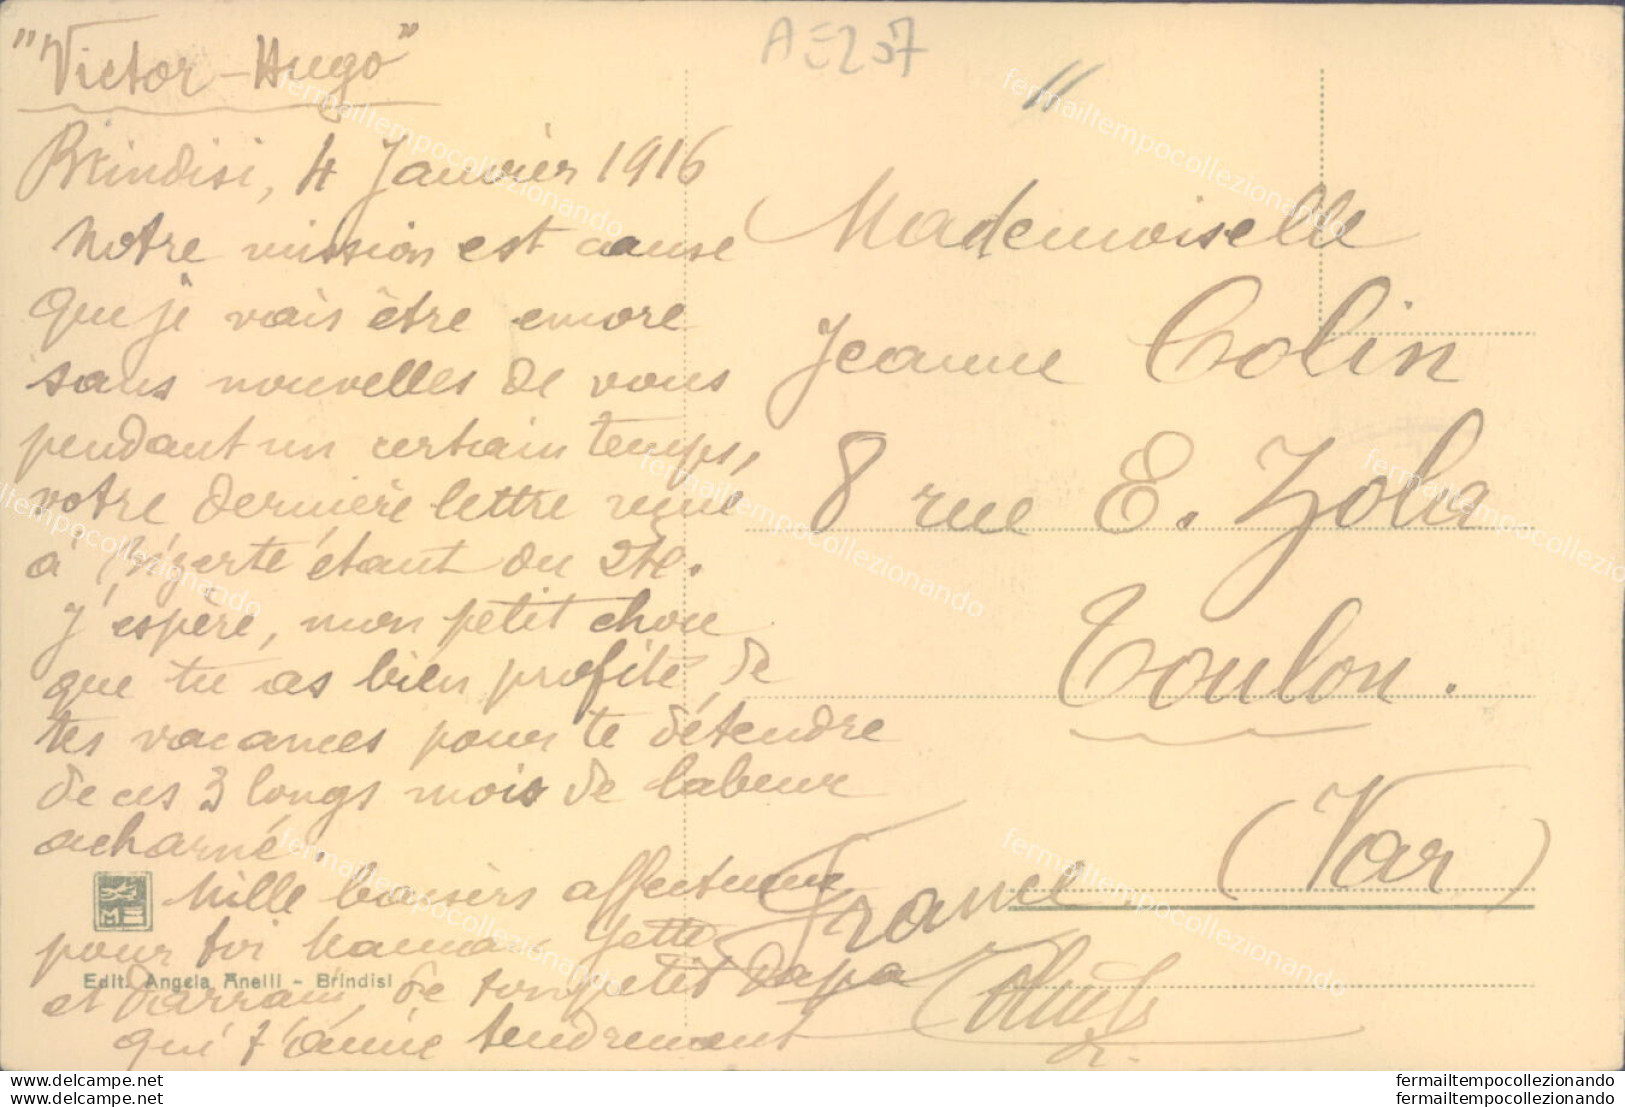 "Victor-Hugo"
Brindisi, 4 Janvier 1916
Notre mission est cause
que je vais être encore
sans nouvelles de vous
pendant un certain temps,
votre dernière lettre reçue
à Bizerte étant du 24.
J'espère, mon petit chou
que tu as bien profité de
tes vacances pour te détendre
de ces 3 longs mois de labeur
acharné.
Mille baisers affectueux
pour toi maman
et Parrain, de ton petit papa
qui t'aime tendrement
AE207
11
Mademoiselle
Jeanne Colin
8 rue E. Zola
Toulon.
(Var)
France
Edit. Angela Anelli - Brindisi
fermailtempocollezionando
www.delcampe.net
www.delcampe.net
fermailtempocollezionando
fermailtempocollezionando